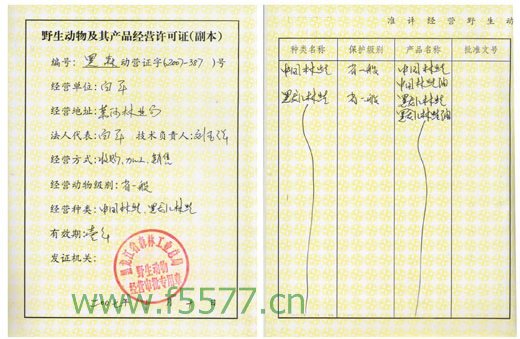 野生动物及其产品经营许可证(副本)
编号: 动营证字(2007-387)号
经营单位:
经营地址: 林业局
法人代表: 技术负责人:
经营方式:收购、加工、销售
经营动物级别:省一般
经营种类:中国林蛙、黑龙江林蛙
有效期:壹年
发证机关:
黑龙江省森林工业总局
野生动物
经营审批专用章
www.f5577.cn
准许经营野生动
种类名称 保护级别 产品名称 批准文号
中国林蛙 省一般 中国林蛙
中国林蛙油
黑龙江林蛙 省一般 黑龙江林蛙
黑龙江林蛙油